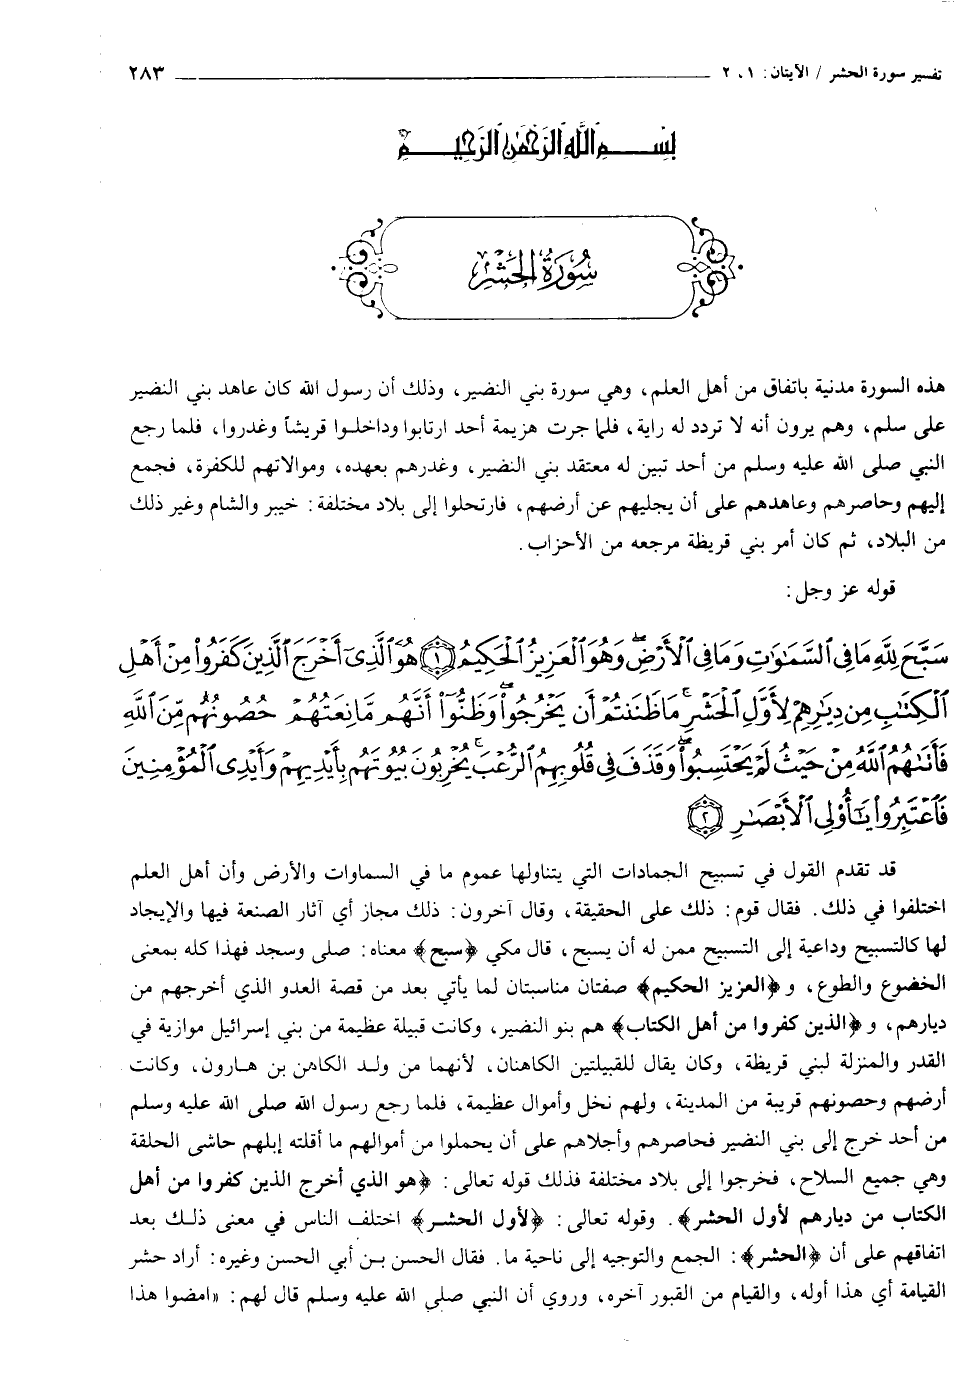 تفسير سورة الحشر / الآيتان : ١ ، ٢ ــــــ ٢٨٣
بِسْمِ اللَّهِ الرَّحْمَٰنِ الرَّحِيمِ
سُورَةُ الحَشْرِ
هذه السورة مدنية باتفاق من أهل العلم، وهي سورة بني النضير، وذلك أن رسول الله كان عاهد بني النضير
على سلم، وهم يرون أنه لا تردد له راية، فلما جرت هزيمة أحد ارتابوا وداخلوا قريشاً وغدروا، فلما رجع
النبي صلى الله عليه وسلم من أحد تبين له معتقد بني النضير، وغدرهم بعهده، وموالاتهم للكفرة، فجمع
إليهم وحاصرهم وعاهدهم على أن يجليهم عن أرضهم، فارتحلوا إلى بلاد مختلفة: خيبر والشام وغير ذلك
من البلاد، ثم كان أمر بني قريظة مرجعه من الأحزاب.
قوله عز وجل:
سَبَّحَ لِلَّهِ مَا فِي ٱلسَّمَٰوَٰتِ وَمَا فِي ٱلْأَرْضِ ۖ وَهُوَ ٱلْعَزِيزُ ٱلْحَكِيمُ ﴿١﴾ هُوَ ٱلَّذِىٓ أَخْرَجَ ٱلَّذِينَ كَفَرُوا۟ مِنْ أَهْلِ
ٱلْكِتَٰبِ مِن دِيَٰرِهِمْ لِأَوَّلِ ٱلْحَشْرِ ۚ مَا ظَنَنتُمْ أَن يَخْرُجُوا۟ ۖ وَظَنُّوٓا۟ أَنَّهُم مَّانِعَتُهُمْ حُصُونُهُم مِّنَ ٱللَّهِ
فَأَتَىٰهُمُ ٱللَّهُ مِنْ حَيْثُ لَمْ يَحْتَسِبُوا۟ ۖ وَقَذَفَ فِي قُلُوبِهِمُ ٱلرُّعْبَ ۚ يُخْرِبُونَ بُيُوتَهُم بِأَيْدِيهِمْ وَأَيْدِى ٱلْمُؤْمِنِينَ
فَٱعْتَبِرُوا۟ يَٰٓأُو۟لِى ٱلْأَبْصَٰرِ ﴿٢﴾
قد تقدم القول في تسبيح الجمادات التي يتناولها عموم ما في السماوات والأرض وأن أهل العلم
اختلفوا في ذلك. فقال قوم: ذلك على الحقيقة، وقال آخرون: ذلك مجاز أي آثار الصنعة فيها والإيجاد
لها كالتسبيح وداعية إلى التسبيح ممن له أن يسبح، قال مكي ﴿سبح﴾ معناه: صلى وسجد فهذا كله بمعنى
الخضوع والطوع، و ﴿العزيز الحكيم﴾ صفتان مناسبتان لما يأتي بعد من قصة العدو الذي أخرجهم من
ديارهم، و ﴿الذين كفروا من أهل الكتاب﴾ هم بنو النضير، وكانت قبيلة عظيمة من بني إسرائيل موازية في
القدر والمنزلة لبني قريظة، وكان يقال للقبيلتين الكاهنان، لأنهما من ولد الكاهن بن هارون، وكانت
أرضهم وحصونهم قريبة من المدينة، ولهم نخل وأموال عظيمة، فلما رجع رسول الله صلى الله عليه وسلم
من أحد خرج إلى بني النضير فحاصرهم وأجلاهم على أن يحملوا من أموالهم ما أقلته إبلهم حاشى الحلقة
وهي جميع السلاح، فخرجوا إلى بلاد مختلفة فذلك قوله تعالى: ﴿هو الذي أخرج الذين كفروا من أهل
الكتاب من ديارهم لأول الحشر﴾. وقوله تعالى: ﴿لأول الحشر﴾ اختلف الناس في معنى ذلك بعد
اتفاقهم على أن ﴿الحشر﴾: الجمع والتوجيه إلى ناحية ما. فقال الحسن بن أبي الحسن وغيره: أراد حشر
القيامة أي هذا أوله، والقيام من القبور آخره، وروي أن النبي صلى الله عليه وسلم قال لهم: «امضوا هذا